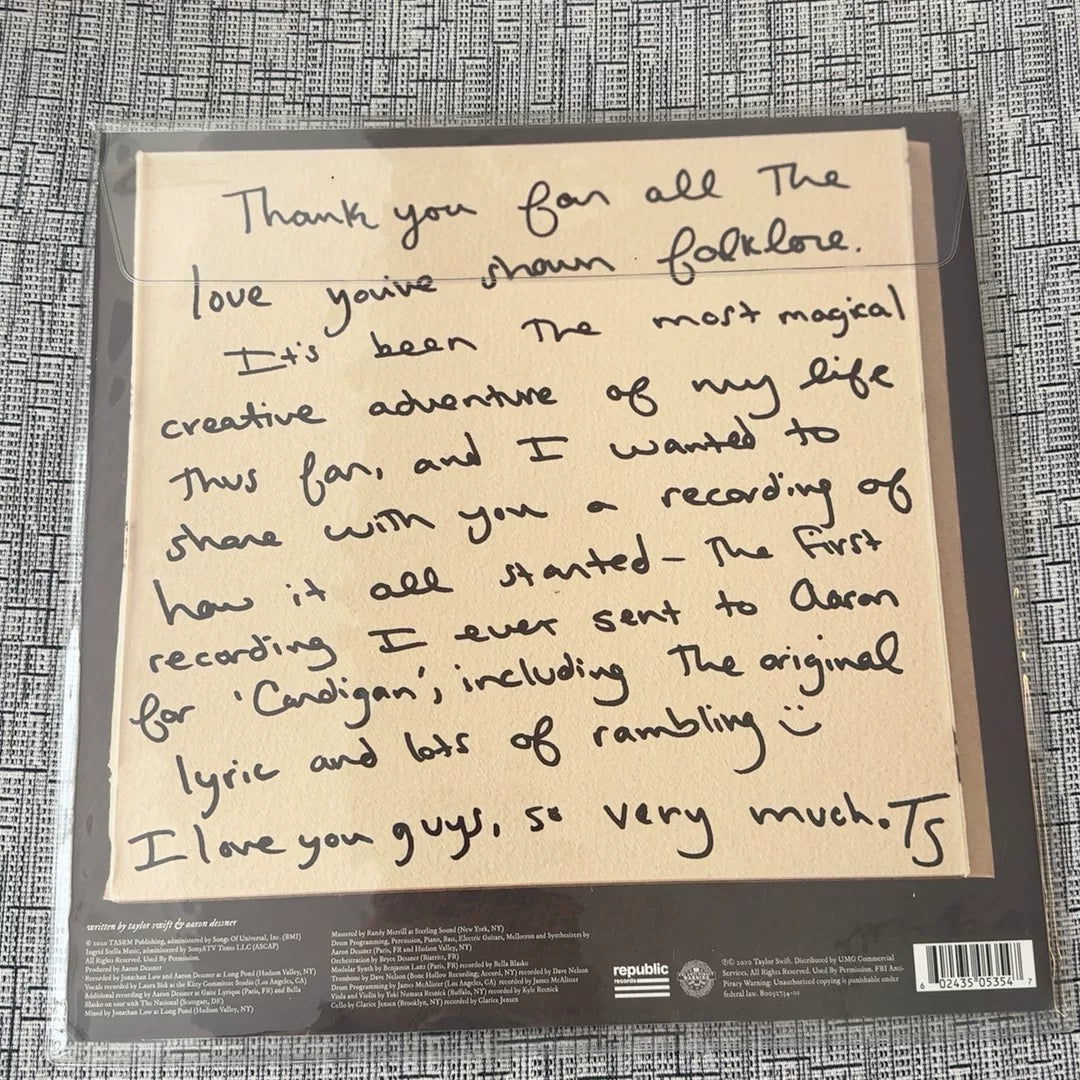 Thank you for all The
love you've shown folklore.
It's been The most magical
creative adventure of my life
Thus far, and I wanted to
share with you a recording of
how it all started - The First
recording I ever sent to Aaron
for 'Cardigan', including The original
lyric and lots of rambling :)
I love you guys, so very much. TS
written by taylor swift & aaron dessner
© 2020 TASRM Publishing, administered by Songs Of Universal, Inc. (BMI)
Ingrid Stella Music, administered by Sony/ATV Tunes LLC (ASCAP)
All Rights Reserved. Used By Permission.
Produced by Aaron Dessner
Recorded by Jonathan Low and Aaron Dessner at Long Pond (Hudson Valley, NY)
Vocals recorded by Laura Sisk at the Kitty Committee Studio (Los Angeles, CA)
Additional recording by Aaron Dessner at Gaite Lyrique (Paris, FR) and Bella
Blasko on tour with The National (Stuttgart, DE)
Mixed by Jonathan Low at Long Pond (Hudson Valley, NY)
Mastered by Randy Merrill at Sterling Sound (New York, NY)
Drum Programming, Percussion, Piano, Bass, Electric Guitars, Mellotron and Synthesizers by
Aaron Dessner (Paris, FR and Hudson Valley, NY)
Orchestration by Bryce Dessner (Biarritz, FR)
Modular Synth by Benjamin Lanz (Paris, FR) recorded by Bella Blasko
Trombone by Dave Nelson (Bone Hollow Recording; Accord, NY) recorded by Dave Nelson
Drum Programming by James McAlister (Los Angeles, CA) recorded by James McAlister
Viola and Violin by Yuki Numata Resnick (Buffalo, NY) recorded by Kyle Resnick
Cello by Clarice Jensen (Brooklyn, NY) recorded by Clarice Jensen
republic
records
℗© 2020 Taylor Swift. Distributed by UMG Commercial
Services. All Rights Reserved. Used By Permission. FBI Anti-
Piracy Warning: Unauthorized copying is punishable under
federal law. B0033734-01
6 02435 05354 7